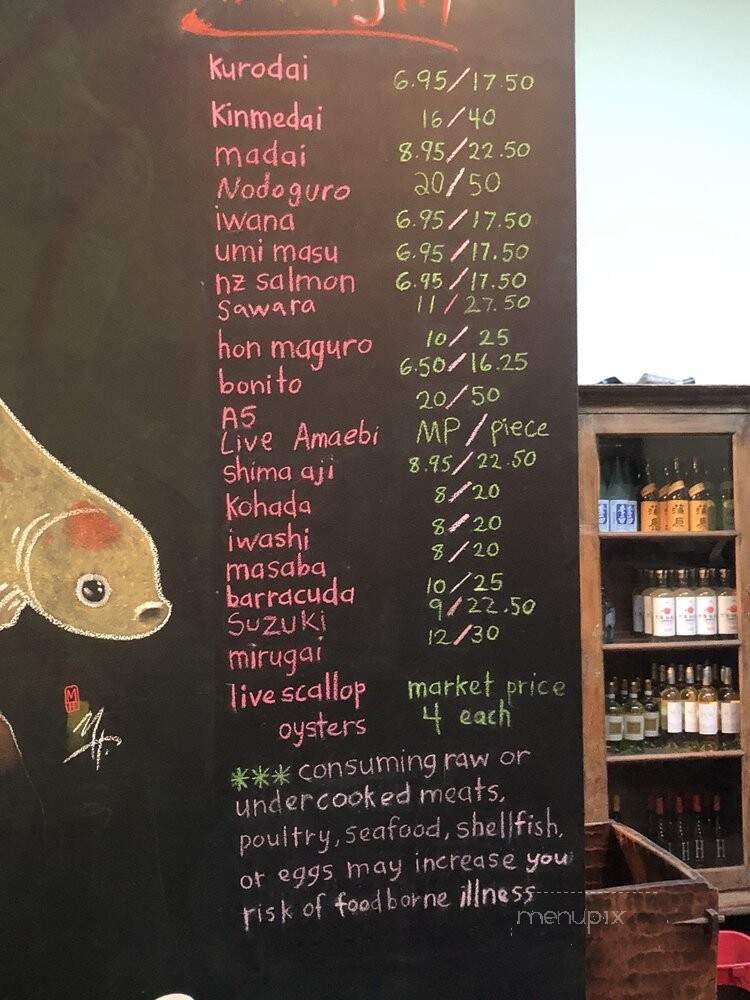 Kurodai 6.95/17.50
Kinmedai 16/40
madai 8.95/22.50
Nodoguro 20/50
iwana 6.95/17.50
umi masu 6.95/17.50
nz salmon 6.95/17.50
Sawara 11/27.50
hon maguro 10/25
bonito 6.50/16.25
A5 20/50
Live Amaebi MP/piece
shima aji 8.95/22.50
Kohada 8/20
iwashi 8/20
masaba 8/20
barracuda 10/25
Suzuki 9/22.50
mirugai 12/30
live scallop market price
oysters 4 each
*** consuming raw or
undercooked meats,
poultry, seafood, shellfish,
or eggs may increase you
risk of foodborne illness
menupix